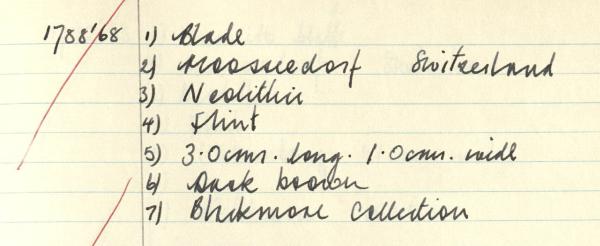 1788'68 1) Blade
2) Moosseedorf Switzerland
3) Neolithic
4) Flint
5) 3.0cms. long. 1.0cms. wide
6) Dark brown
7) Blackmore Collection